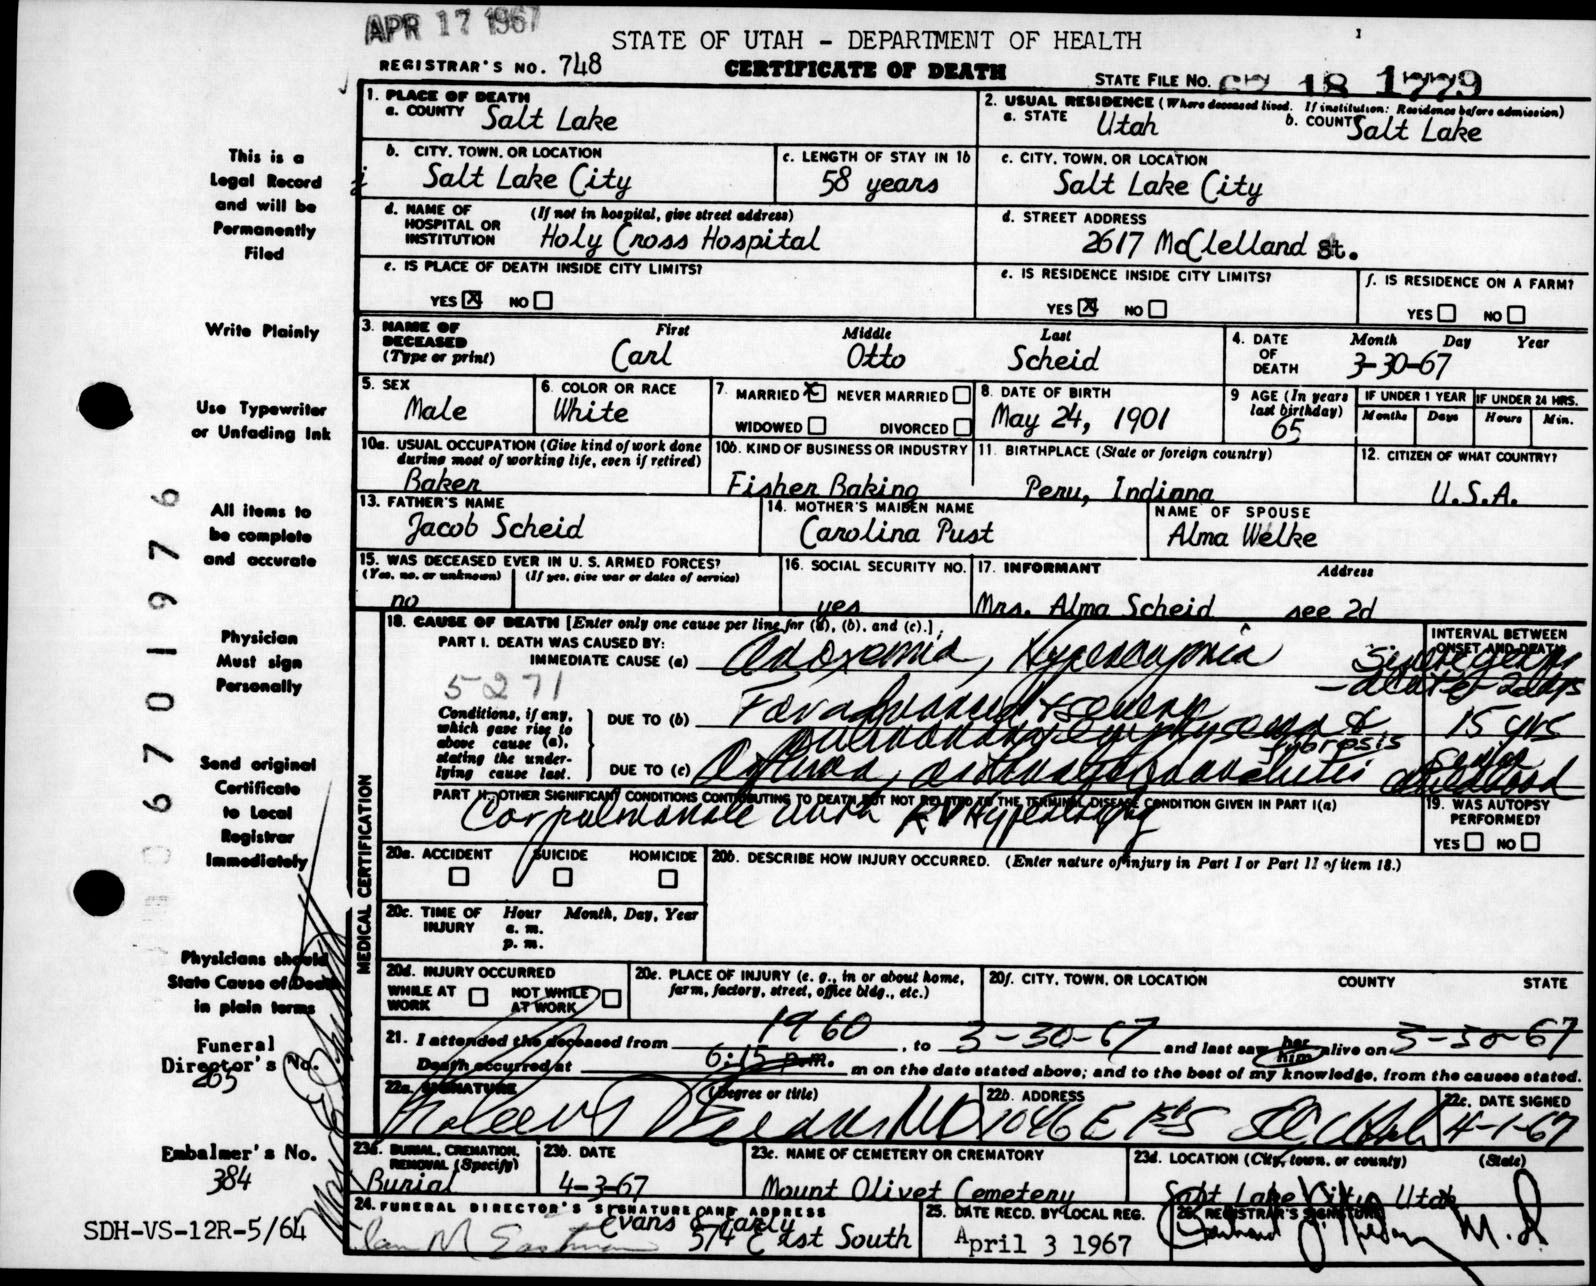 APR 17 1967
STATE OF UTAH - DEPARTMENT OF HEALTH
REGISTRAR'S NO. 748
CERTIFICATE OF DEATH
STATE FILE NO. 67 18 1779
1. PLACE OF DEATH
a. COUNTY Salt Lake
2. USUAL RESIDENCE (Where deceased lived. If institution: Residence before admission)
a. STATE Utah b. COUNT Salt Lake
b. CITY, TOWN, OR LOCATION Salt Lake City
c. LENGTH OF STAY IN 1b 58 years
c. CITY, TOWN, OR LOCATION Salt Lake City
d. NAME OF HOSPITAL OR INSTITUTION (If not in hospital, give street address) Holy Cross Hospital
d. STREET ADDRESS 2617 McClelland St.
e. IS PLACE OF DEATH INSIDE CITY LIMITS? YES X NO
e. IS RESIDENCE INSIDE CITY LIMITS? YES X NO
f. IS RESIDENCE ON A FARM? YES NO
3. NAME OF DECEASED (Type or print) First Middle Last
Carl Otto Scheid
4. DATE OF DEATH Month Day Year
3-30-67
5. SEX Male
6. COLOR OR RACE White
7. MARRIED X NEVER MARRIED
WIDOWED DIVORCED
8. DATE OF BIRTH May 24, 1901
9 AGE (In years last birthday) 65
IF UNDER 1 YEAR Months Days
IF UNDER 24 HRS. Hours Min.
10a. USUAL OCCUPATION (Give kind of work done during most of working life, even if retired) Baker
10b. KIND OF BUSINESS OR INDUSTRY Fisher Baking
11. BIRTHPLACE (State or foreign country) Peru, Indiana
12. CITIZEN OF WHAT COUNTRY? U.S.A.
13. FATHER'S NAME Jacob Scheid
14. MOTHER'S MAIDEN NAME Carolina Pust
NAME OF SPOUSE Alma Welke
15. WAS DECEASED EVER IN U. S. ARMED FORCES?
(Yes, no, or unknown) (If yes, give war or dates of service)
no
16. SOCIAL SECURITY NO. yes
17. INFORMANT Address
Mrs. Alma Scheid see 2d
MEDICAL CERTIFICATION
18. CAUSE OF DEATH [Enter only one cause per line for (a), (b), and (c).]
INTERVAL BETWEEN ONSET AND DEATH
PART I. DEATH WAS CAUSED BY:
IMMEDIATE CAUSE (a) Anoxemia, Hypercapnia
acute - 2 days
5271
Conditions, if any, which gave rise to above cause (a), stating the underlying cause last.
DUE TO (b) Far advanced severe pulmonary emphysema & fybrosis 15 yrs
DUE TO (c) Asthma, asthmatic bronchitis childhood
PART II. OTHER SIGNIFICANT CONDITIONS CONTRIBUTING TO DEATH BUT NOT RELATED TO THE TERMINAL DISEASE CONDITION GIVEN IN PART I(a)
Cor pulmonale with RV Hypertrophy
19. WAS AUTOPSY PERFORMED? YES NO
20a. ACCIDENT SUICIDE HOMICIDE
20b. DESCRIBE HOW INJURY OCCURRED. (Enter nature of injury in Part I or Part II of item 18.)
20c. TIME OF INJURY Hour a. m. p. m. Month, Day, Year
20d. INJURY OCCURRED WHILE AT WORK NOT WHILE AT WORK
20e. PLACE OF INJURY (e. g., in or about home, farm, factory, street, office bldg., etc.)
20f. CITY, TOWN, OR LOCATION COUNTY STATE
21. I attended the deceased from 1960, to 3-30-67 and last saw her him alive on 3-30-67
Death occurred at 6:15 p.m. m on the date stated above; and to the best of my knowledge, from the causes stated.
22a. SIGNATURE (Degree or title) MD
22b. ADDRESS 1046 E 1st S SLC Utah
22c. DATE SIGNED 4-1-67
23a. BURIAL, CREMATION, REMOVAL (Specify) Burial
23b. DATE 4-3-67
23c. NAME OF CEMETERY OR CREMATORY Mount Olivet Cemetery
23d. LOCATION (City, town, or county) (State) Salt Lake City, Utah
24. FUNERAL DIRECTOR'S SIGNATURE AND ADDRESS
Evans & Early
574 East South
25. DATE RECD. BY LOCAL REG. April 3 1967
26. REGISTRAR'S SIGNATURE M.D.
This is a Legal Record and will be Permanently Filed
Write Plainly
Use Typewriter or Unfading Ink
All items to be complete and accurate
Physician Must sign Personally
Send original Certificate to Local Registrar Immediately
Physicians should State Cause of Death in plain terms
Funeral Director's No.
265
Embalmer's No.
384
SDH-VS-12R-5/64
06701976